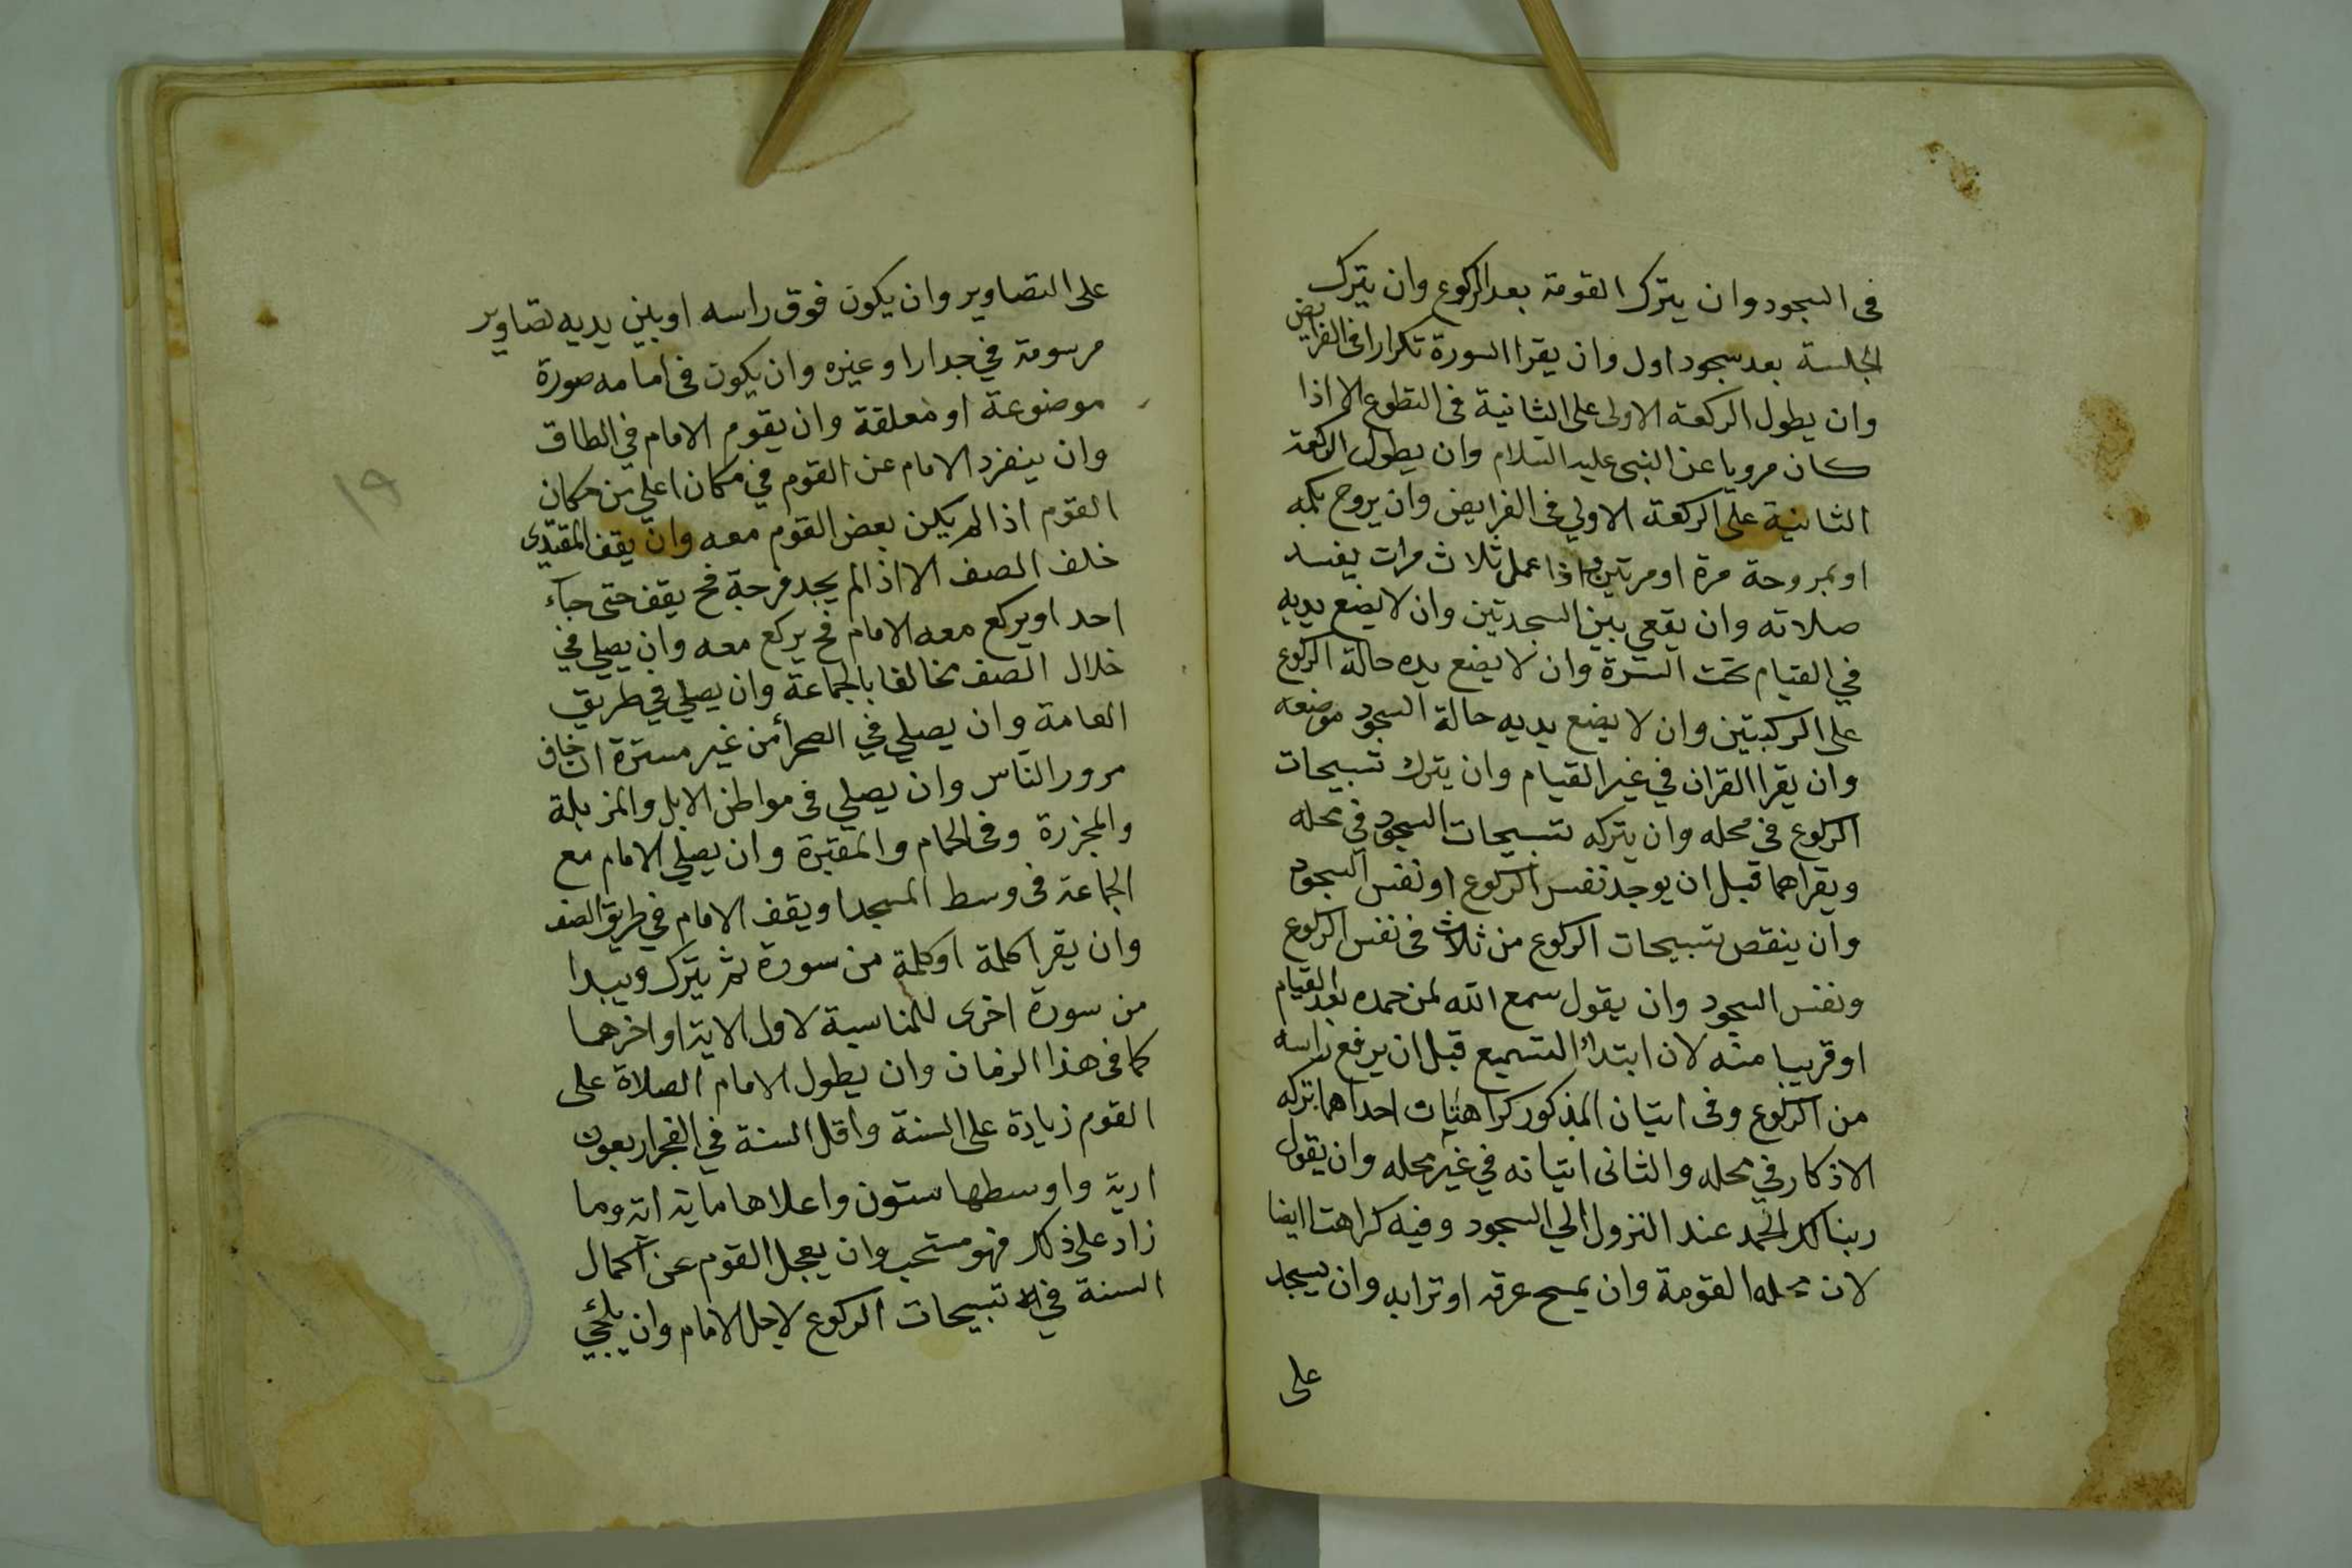 فى السجود وان يترك القومة بعد الركوع وان يترك
الجلسة بعد سجود اول وان يقرا السورة تكرارا فى الفرايض
وان يطول الركعة الاولى على الثانية فى التطوع الا اذا
كان مرويا عن النبى عليه السلام وان يطول الركعة
الثانية على الركعة الاولي فى الفرايض وان يروح بكمه
او بمروحة مرة او مرتين واذا عمل ثلاث مرات يفسد
صلاته وان يقعي بين السجدتين وان لا يضع يديه
في القيام تحت السرة وان لا يضع يده حالة الركوع
على الركبتين وان لا يضع يديه حالة السجود موضعه
وان يقرا القران في غير القيام وان يترك تسبيحات
الركوع فى محله وان يتركه تسبيحات السجود في محله
ويقراهما قبل ان يوجد نفس الركوع او نفس السجود
وان ينقص تسبيحات الركوع من ثلاث فى نفس الركوع
ونفس السجود وان يقول سمع الله لمن حمده بعد القيام
او قريبا منه لان ابتداء التسميع قبل ان يرفع راسه
من الركوع وفى اتيان المذكور كراهتان احداهما تركه
الاذكار في محله والثانى اتيانه في غير محله وان يقول
ربنا لك الحمد عند النزول الي السجود وفيه كراهتا ايضا
لان محله القومة وان يمسح عرقه او ترابه وان يسجد
على
على التصاوير وان يكون فوق راسه او بين يديه تصاوير
مرسومة في جدار او غيره وان يكون فى امامه صورة
موضوعة او معلقة وان يقوم الامام في الطاق
وان ينفرد الامام عن القوم في مكان اعلي من مكان
القوم اذا لم يكن بعض القوم معه وان يقف المقتدى
خلف الصف الا اذا لم يجد فرجة فح يقف حتى جاء
احد او يركع معه الامام فح يركع معه وان يصلي في
خلال الصف مخالفا بالجماعة وان يصلي في طريق
العامة وان يصلي في الصحرأ من غير سترة ان خاف
مرور الناس وان يصلي فى مواطن الابل والمزبلة
والمجزرة وفى الحمام والمقبرة وان يصلي الامام مع
الجماعة فى وسط المسجد او يقف الامام في طريق الصف
وان يقرا كلمة او كلمة من سورة ثم يترك ويبدا
من سورة اخرى للمناسبة لاول الاية او اخرهما
كما فى هذا الزمان وان يطول الامام الصلاة على
القوم زيادة على السنة واقل السنة في الفجر اربعون
اية واوسطها ستون واعلاها ماية اية وما
زاد على ذلك فهو مستحب وان يعجل القوم عن اكمال
السنة في تسبيحات الركوع لاجل الامام وان يلجي
١٩